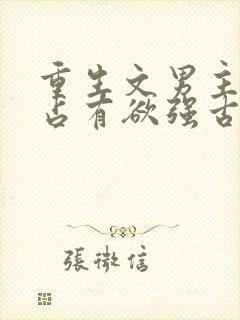 重生文男主
占有欲强古
張微信